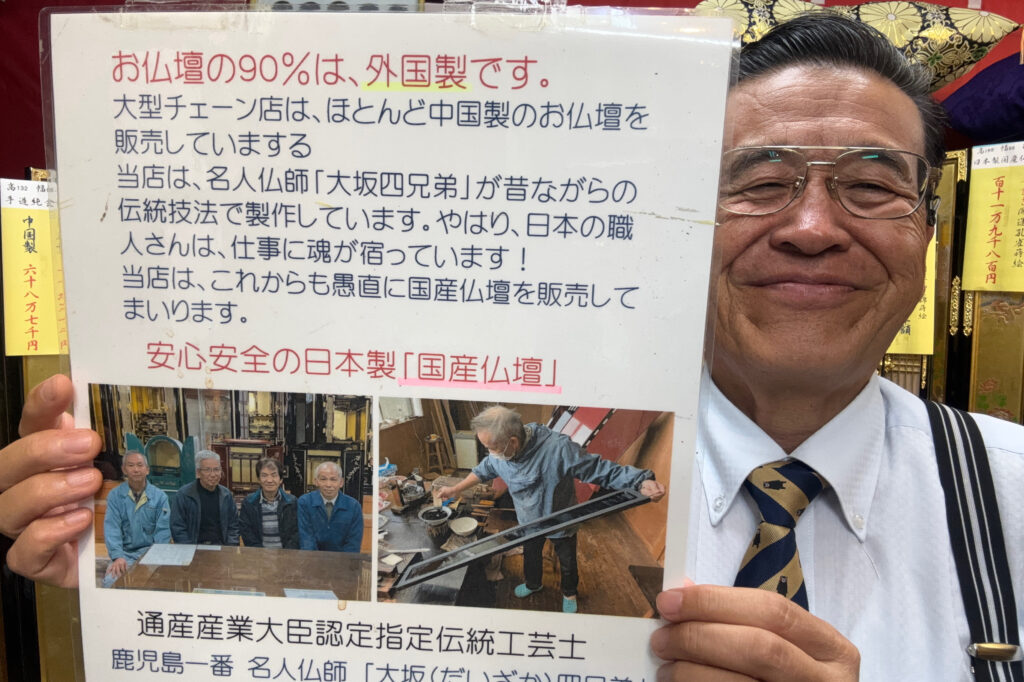 お仏壇の90%は、外国製です。
大型チェーン店は、ほとんど中国製のお仏壇を
販売していまする
当店は、名人仏師「大坂四兄弟」が昔ながらの
伝統技法で製作しています。やはり、日本の職
人さんは、仕事に魂が宿っています！
当店は、これからも愚直に国産仏壇を販売して
まいります。
安心安全の日本製「国産仏壇」
通産産業大臣認定指定伝統工芸士
鹿児島一番 名人仏師 「大坂(だいざか)四兄弟」
高132 幅
手造純金
中国製
六十八万七千円
日本製国産
百十一万九千八百円